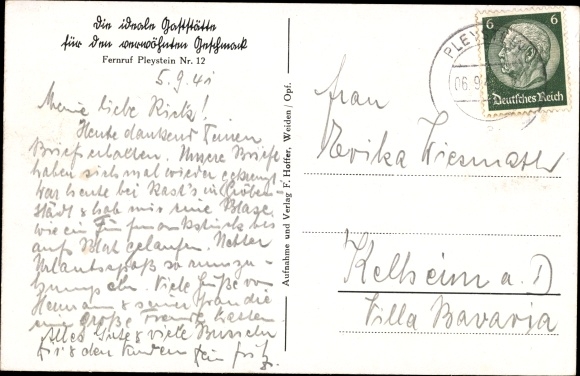 Die ideale Gaststätte
für den verwöhnten Geschmack
Fernruf Pleystein Nr. 12
5.9.41
Meine liebe Rick!
Heute dankend Deinen
Brief erhalten. Unsere Briefe
haben sich mal wieder gekreuzt.
War heute bei in
städt & hab mir eine Blase
wie ein Fünfmarkstück bis
aufs Blut gelaufen. Netter
Urlaubsspaß so
Viele Grüße von
Hermann & seiner Frau die
eine große Freude hatten.
Alles Gute & viele Busseln
Dir & den Kindern Dein Fritz.
Aufnahme und Verlag F. Hoffer, Weiden / Opf.
6 6
Deutsches Reich
PLEY
06.9
Frau
Erika Wiesmath
Kelheim a. D
Villa Bavaria